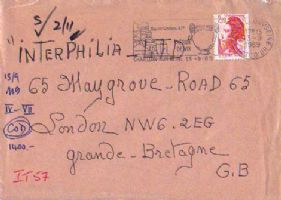 S/2/11
"INTERPHILIA
15/9
109
IV-VII
COD
1400.-
65 Haygrove-ROAD 65
London NW6.2EG
grande-Bretagne
G.B
IT57